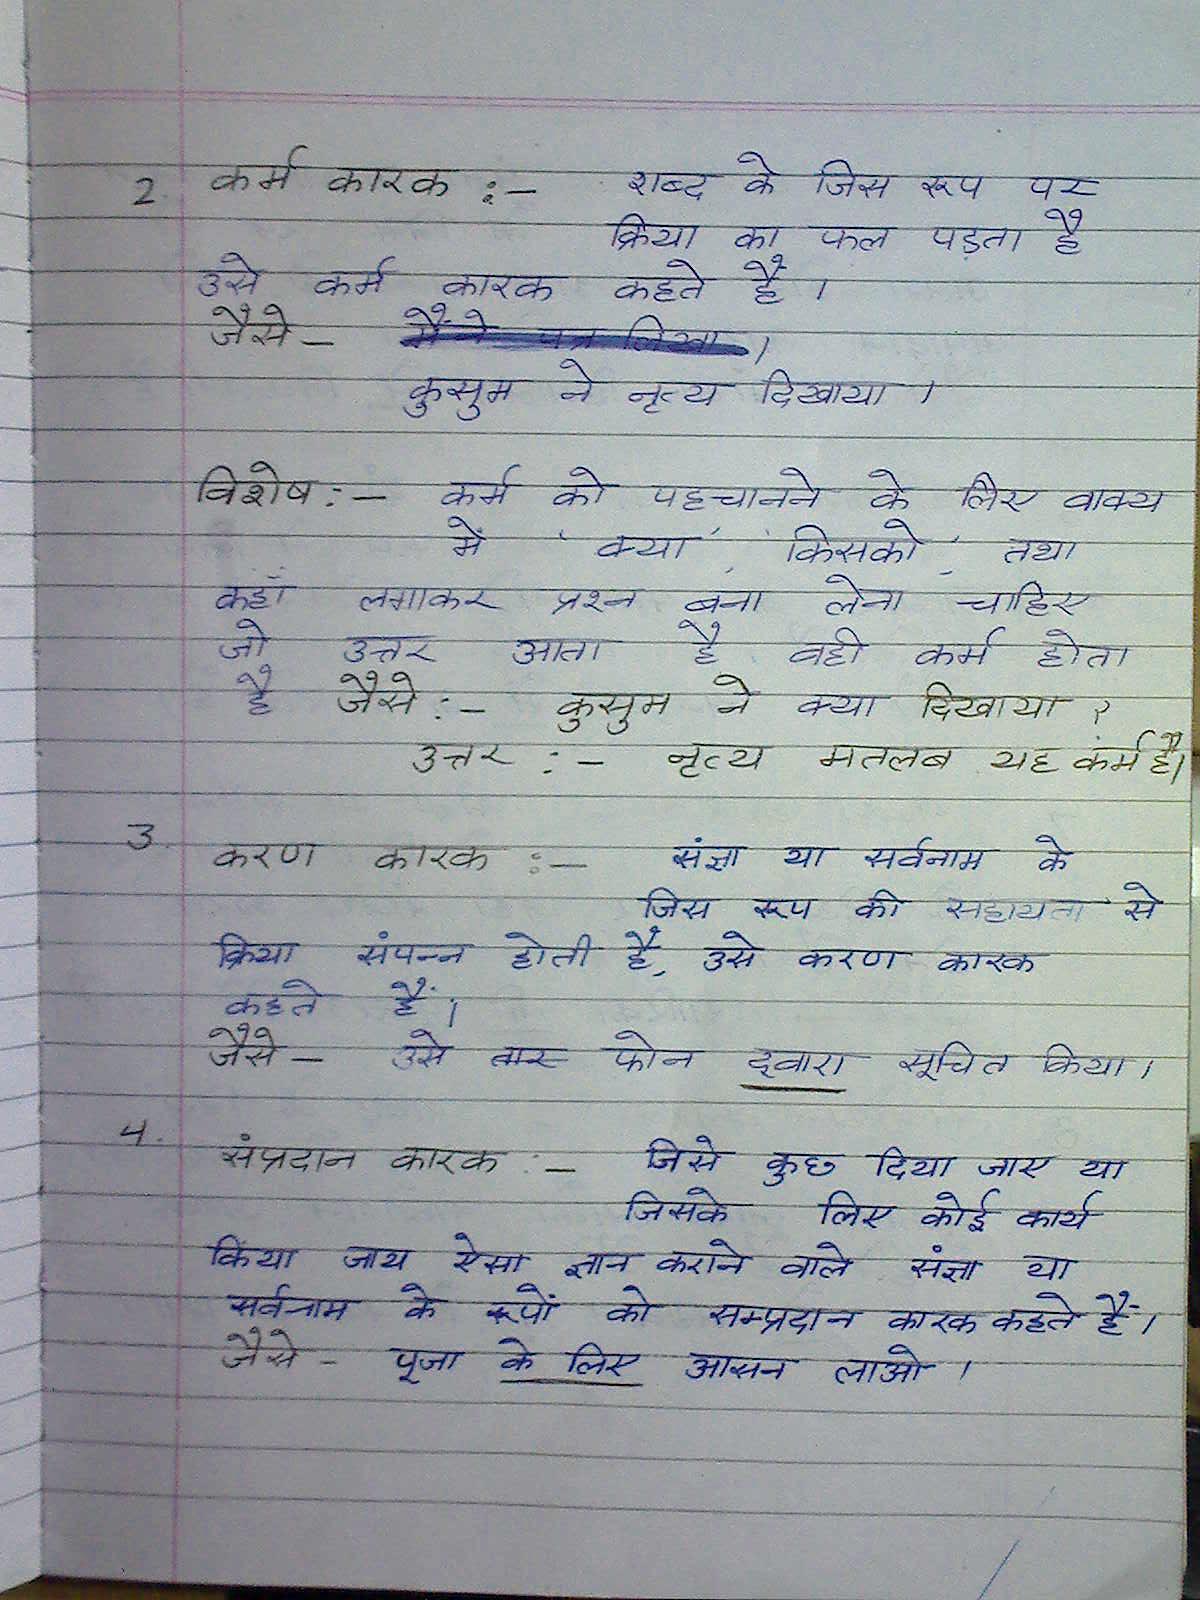 2. कर्म कारक :- शब्द के जिस रूप पर
क्रिया का फल पड़ता है
उसे कर्म कारक कहते हैं ।
जैसे - मैंने पत्र लिखा ।
कुसुम ने नृत्य दिखाया ।
विशेष :- कर्म को पहचानने के लिए वाक्य
में 'क्या', 'किसको', तथा
कहाँ लगाकर प्रश्न बना लेना चाहिए
जो उत्तर आता है वही कर्म होता
है जैसे :- कुसुम ने क्या दिखाया ?
उत्तर :- नृत्य मतलब यह कर्म है।
3. करण कारक :- संज्ञा या सर्वनाम के
जिस रूप की सहायता से
क्रिया संपन्न होती है, उसे करण कारक
कहते हैं ।
जैसे - उसे तार फोन द्वारा सूचित किया ।
4. संप्रदान कारक :- जिसे कुछ दिया जाए या
जिसके लिए कोई कार्य
किया जाय ऐसा ज्ञान कराने वाले संज्ञा या
सर्वनाम के रूपों को सम्प्रदान कारक कहते हैं ।
जैसे - पूजा के लिए आसन लाओ ।